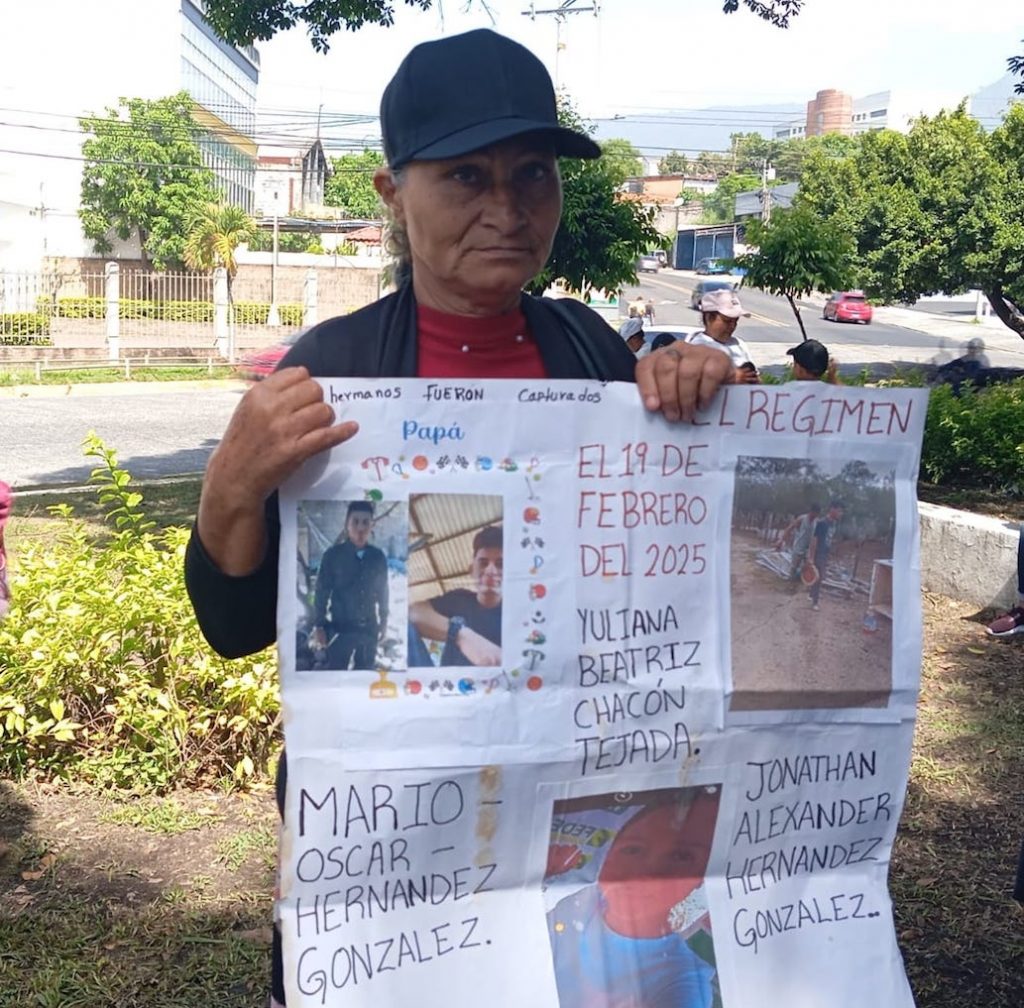 hermanos FUERON Capturados
EL REGIMEN
Papá
EL 19 DE
FEBRERO
DEL 2025
YULIANA
BEATRIZ
CHACÓN
TEJADA.
MARIO -
OSCAR -
HERNANDEZ
GONZALEZ.
JONATHAN
ALEXANDER
HERNANDEZ
GONZALEZ..